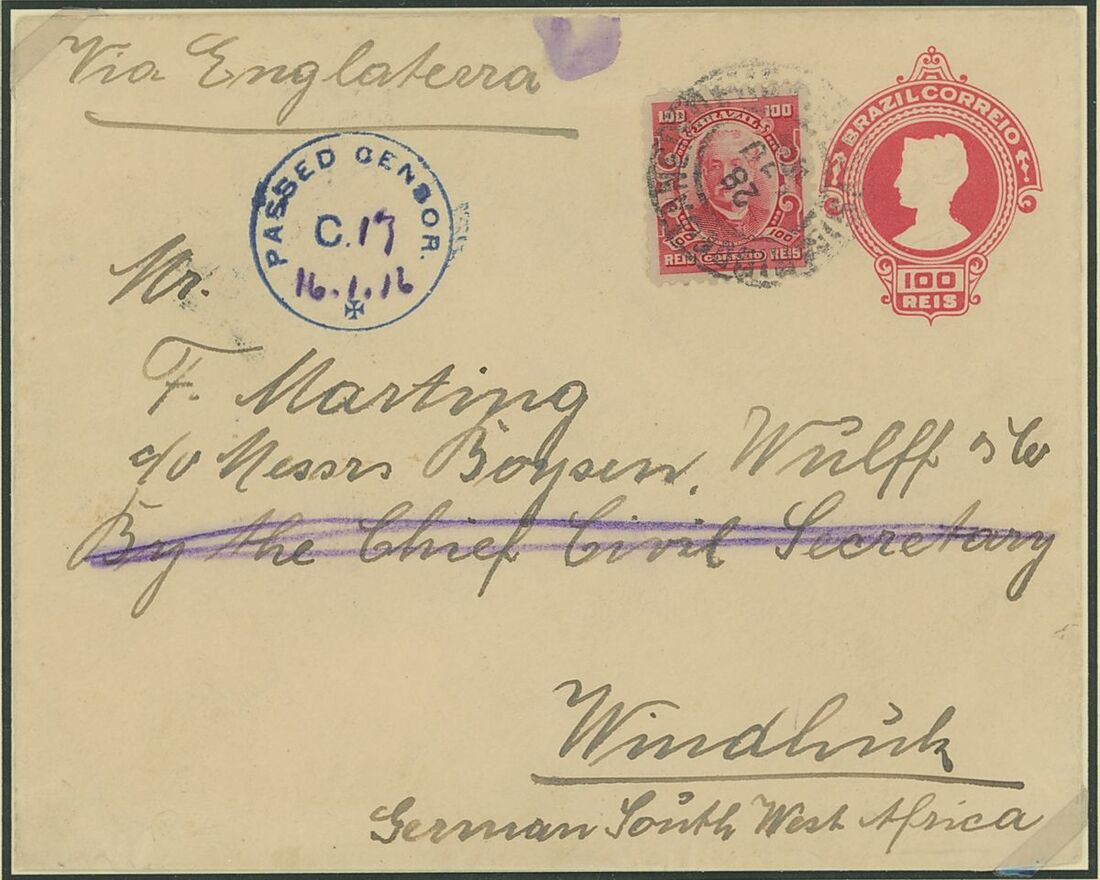 Via Englaterra
PASSED CENSOR.
C. 17
16.1.16
100 100
BRAZIL
28
100 100
REIS CORREIO REIS
BRAZIL CORREIO
100
REIS
Mr.
F. Marting
c/o Messrs Boysen, Wulff & Co
By the Chief Civil Secretary
Windhuk
German South West Africa